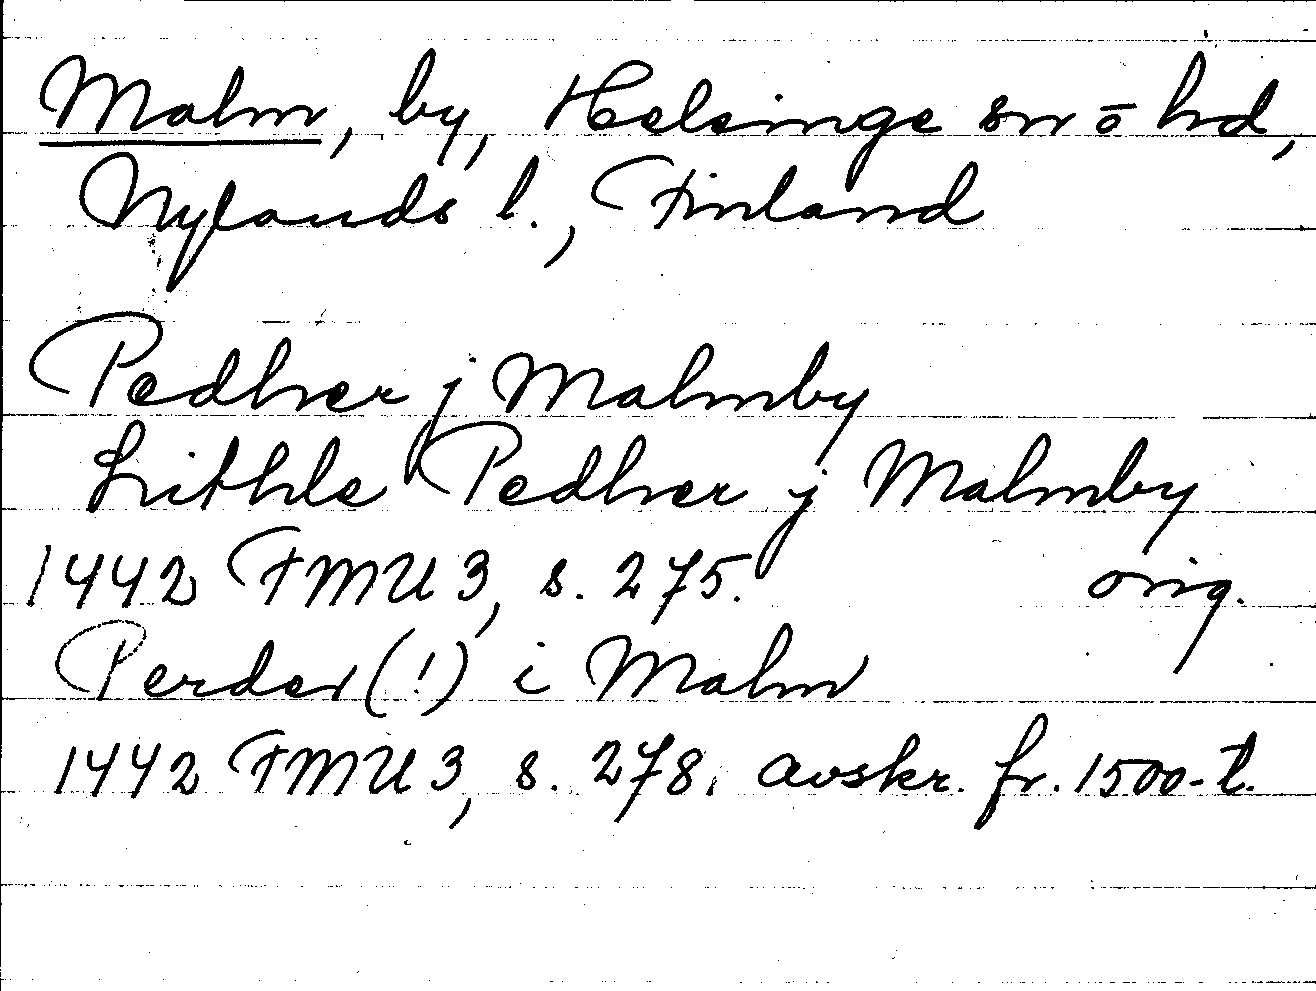 Malm, by, Helsinge sn o hd,
Nylands l., Finland
Pedher j Malmby
Lithle Pedher j Malmby
1442 FMU 3, s. 275. orig.
Perder (!) i Malm
1442 FMU 3, s. 278. avskr. fr. 1500-t.